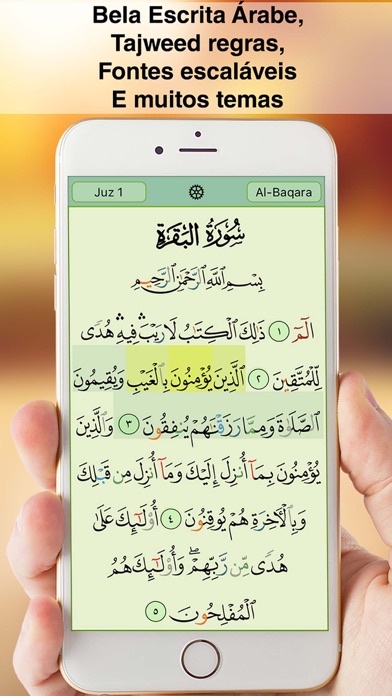 Bela Escrita Árabe,
Tajweed regras,
Fontes escaláveis
E muitos temas
Juz 1
Al-Baqara
سُورَةُ البَقَرَةِ
بِسْمِ ٱللَّهِ ٱلرَّحْمَٰنِ ٱلرَّحِيمِ
الٓمٓ ١ ذَٰلِكَ ٱلْكِتَٰبُ لَا رَيْبَ ۛ فِيهِ ۛ هُدًى
لِّلْمُتَّقِينَ ٢ ٱلَّذِينَ يُؤْمِنُونَ بِٱلْغَيْبِ وَيُقِيمُونَ
ٱلصَّلَوٰةَ وَمِمَّا رَزَقْنَٰهُمْ يُنفِقُونَ ٣ وَٱلَّذِينَ
يُؤْمِنُونَ بِمَآ أُنزِلَ إِلَيْكَ وَمَآ أُنزِلَ مِن قَبْلِكَ
وَبِٱلْءَاخِرَةِ هُمْ يُوقِنُونَ ٤ أُو۟لَٰٓئِكَ عَلَىٰ
هُدًى مِّن رَّبِّهِمْ ۖ وَأُو۟لَٰٓئِكَ هُمُ
ٱلْمُفْلِحُونَ ٥